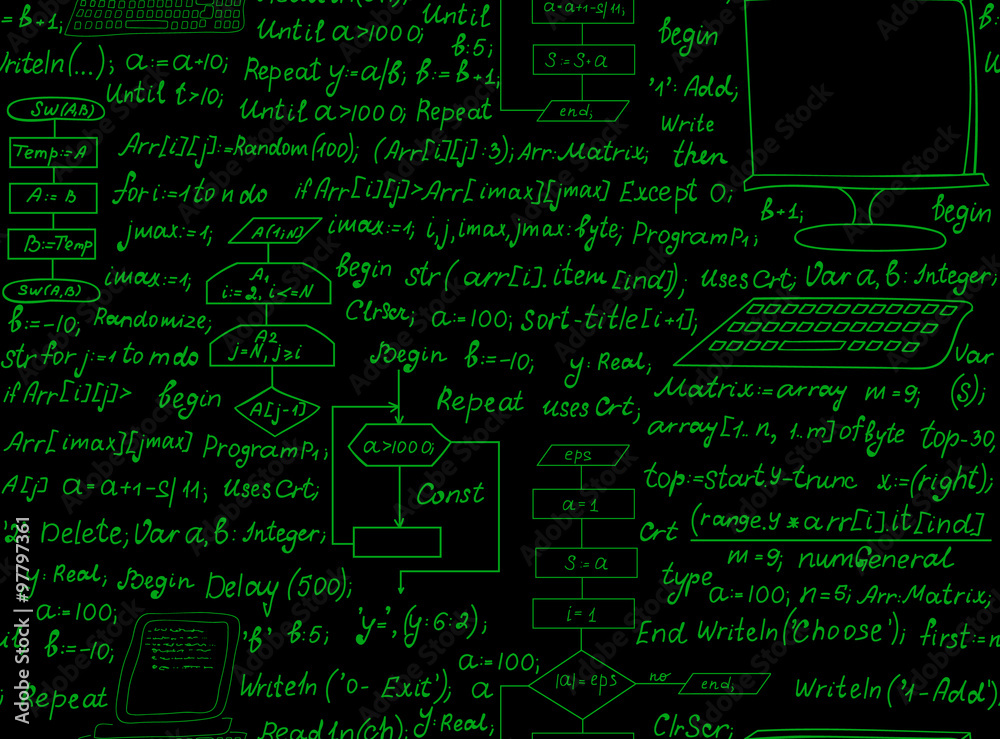 = b+1;
Until a>1000;
Until
b:5;
a=a+1-s/11;
S:=S+a
end;
begin
'1': Add;
Write
then
Writeln(...); a:=a+10;
Repeat y:=a/b; b:=b+1;
Until t>10;
Until a>1000; Repeat
SW(A,B)
Temp:=A
A:=B
B:=Temp
SW(A,B)
Arr[i][j]:=Random(100); (Arr[i][j]:3); Arr:Matrix;
for i:=1 to n do if Arr[i][j]>Arr[imax][jmax] Except 0;
b+1;
begin
jmax:=1;
A(1;N)
imax:=1; i,j,imax,jmax:byte; Program P1;
imax:=1;
A1
i:=2, i<=N
begin str(arr[i].item[ind]); uses Crt; Var a, b: Integer;
b:=-10; Randomize;
Clrscr; a:=100; sort-title[i+1];
A2
j=N, j≥i
str for j:=1 to m do
Begin b:=-10; y: Real;
Var
(S);
if Arr[i][j]> begin
A[j-1]
Repeat uses Crt;
Matrix:=array m=9;
array[1..n, 1..m] of byte top-30,
Arr[imax][jmax] Program P1;
a>1000;
eps
A[j] a=a+1-s/11; uses Crt;
Const
a=1
top:=start.y-trunc x:=(right);
Delete; Var a, b: Integer;
Crt (range.y*arr[i].it[ind]
m=9; numGeneral
S:=a
y: Real; Begin Delay(500);
type
a:=100; n=5; Arr:Matrix;
i=1
a:=100;
'b' b:5; 'y=', (y:6:2);
End Writeln('Choose'); first:=n
b:=-10;
a:=100;
|a|=eps
no
end;
Repeat
Writeln('0- Exit'); a
Writeln('1-Add')
Readln(ch); y:Real;
ClrScr;
Adobe Stock | #97797361